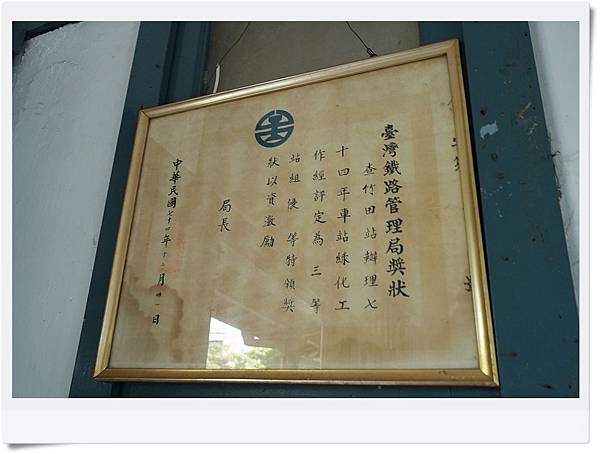 臺灣鐵路管理局獎狀
查竹田站辦理七
十四年車站綠化工
作經評定為三等
站組優等特頒獎
狀以資激勵
局長
中華民國七十四年十二月卅一日